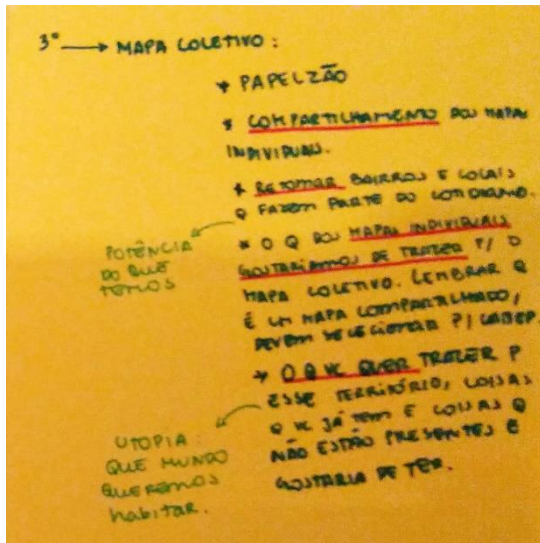 3º → MAPA COLETIVO:
* PAPELZÃO
* COMPARTILHAMENTO DOS MAPAS
INDIVIDUAIS.
* RETOMAR BAIRROS E LOCAIS
Q FAZEM PARTE DO COTIDIANO.
* O Q DOS MAPAS INDIVIDUAIS
GOSTARIAMOS DE TRAZER P/ O
MAPA COLETIVO. LEMBRAR Q
É UM MAPA COMPARTILHADO,
DEVEM SELECIONAR P/ CABER.
* O Q VC QUER TRAZER P
ESSE TERRITÓRIO, COISAS
Q VC JÁ TEM E COISAS Q
NÃO ESTÃO PRESENTES E
GOSTARIA DE TER.
POTÊNCIA
DO QUE
TEMOS
UTOPIA:
QUE MUNDO
QUEREMOS
habitar.